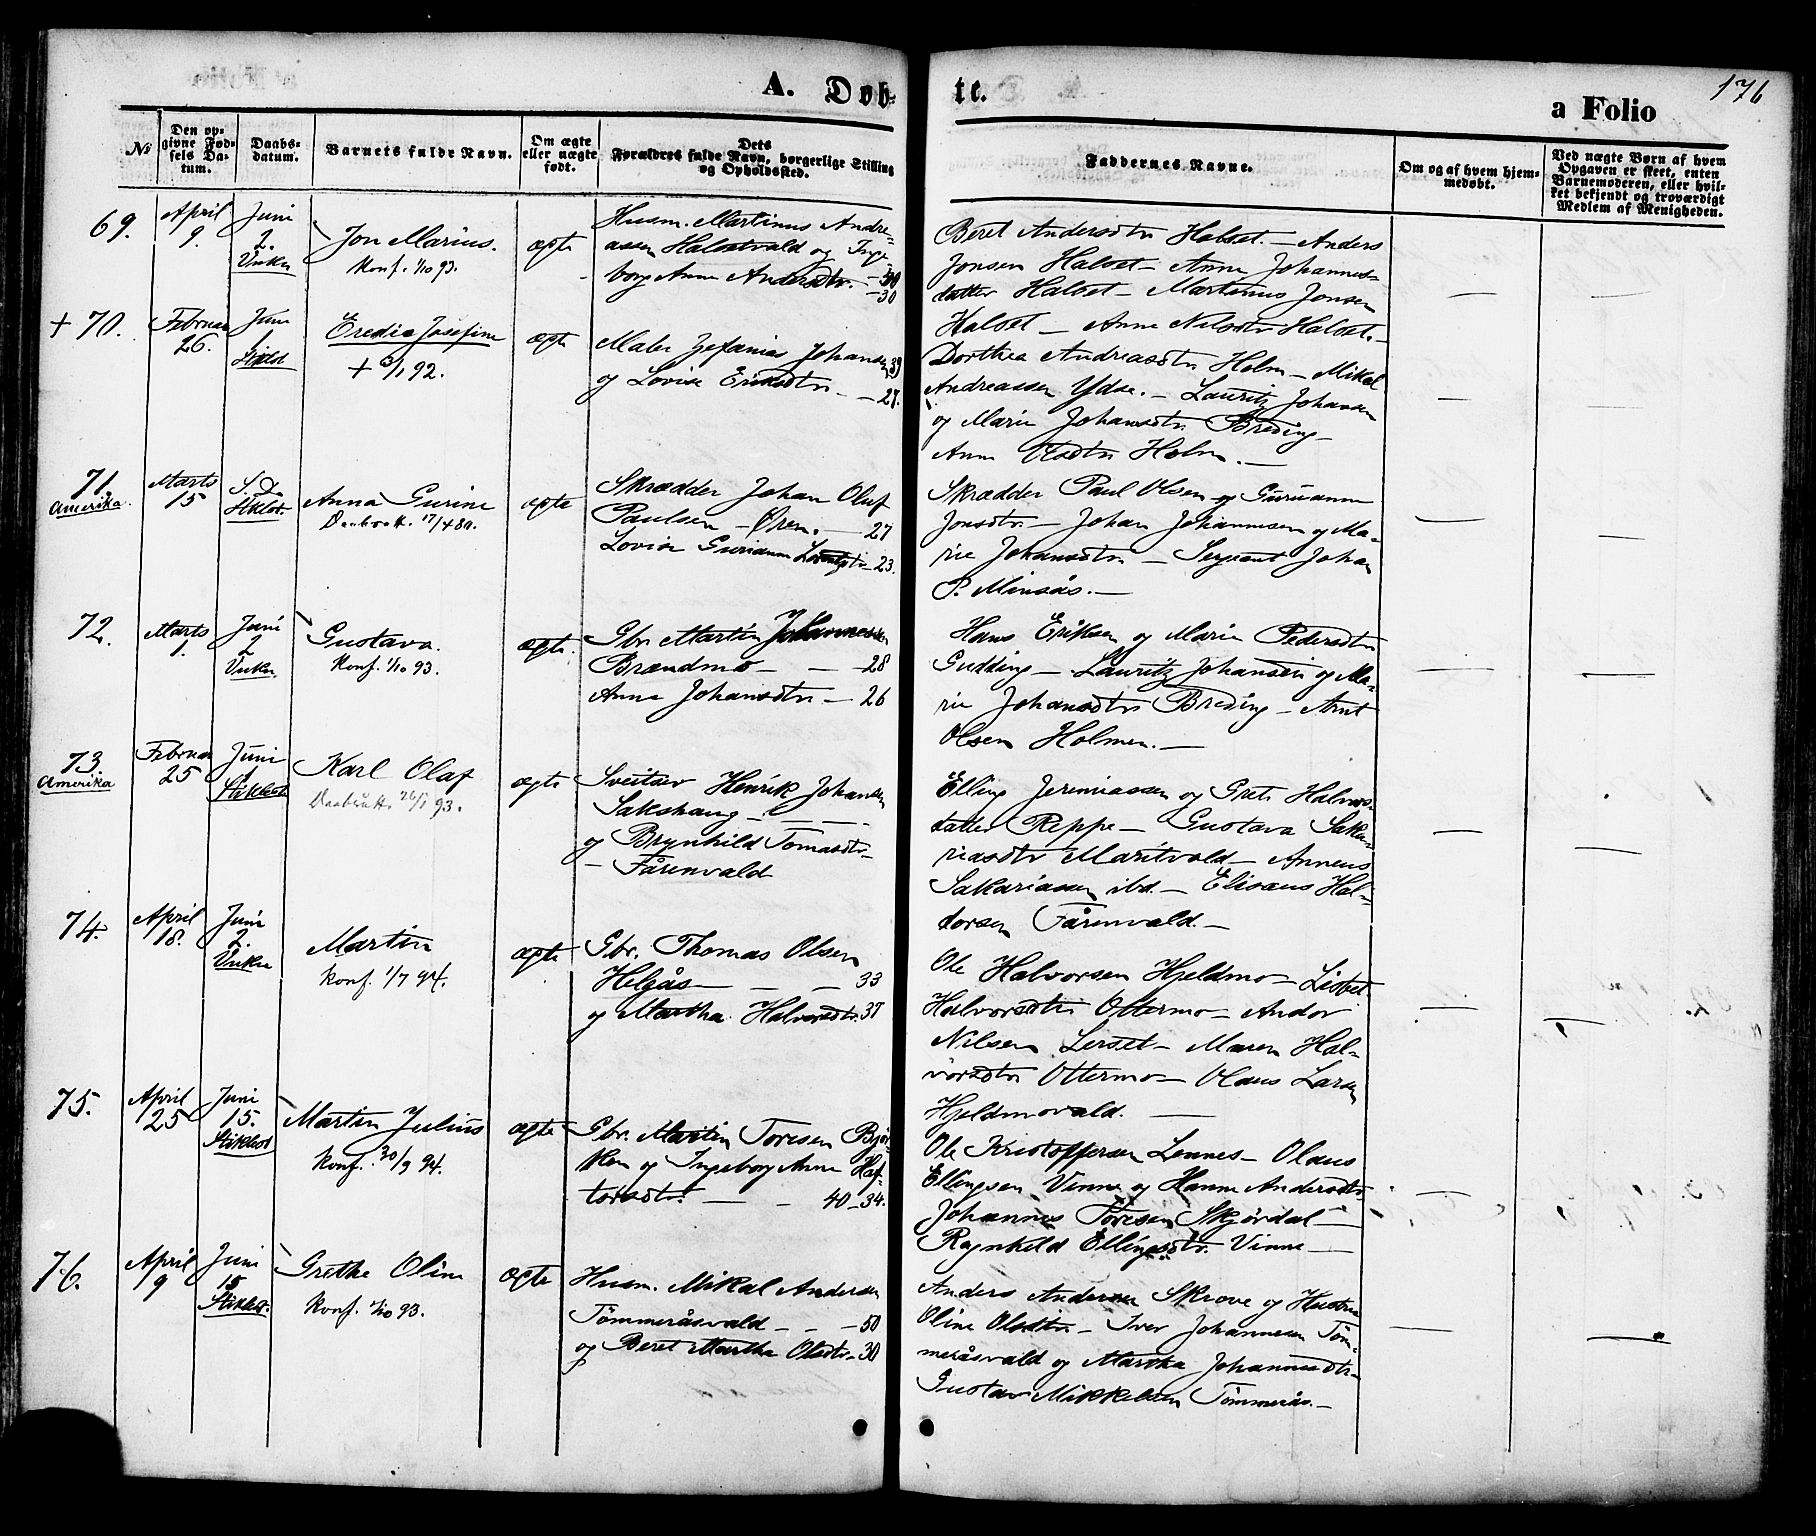 A. Døb-
te.
a Folio
176
No
Den op-
givne Fød-
sels Da-
tum.
Daabs-
datum.
Barnets fulde Navn.
Om ægte
eller nægte
født.
Dets
Forældres fulde Navn, borgerlige Stilling
og Opholdssted.
Faddernes Navne.
Om og af hvem hjem-
medøbt.
Ved nægte Børn af hvem
Opgaven er skeet, enten
Barnemoderen, eller hvil-
ket bekjendt og troværdigt
Medlem af Menigheden.
69.
April
9.
Juni
2.
Vuku
Jon Marius.
Konf. 1/10 93.
ægte
Husm. Martinus Andre-
assen Halsetvald og Inge
borg Anna Andersdtr. - 30
- 30
Beret Andersdtr Halset. - Anders
Jonsen Halset - Anne Johannes-
datter Halset - Martinus Jonsen
Halset - Anne Nilsdtr Halset. -
+ 70.
Februar
26.
Juni
Stiklst
Eredia Josefine
+ 3/1 92.
ægte
Maler Zefanias Johansen 39
og Lovise Eriksdtr - - 27.
Dorthea Andreasdtr Holm - Mikal
Andreassen Ydse. - Lauritz Johansen
og Marie Johansdtr Breding -
Anne Olsdtr Holm. -
71.
Amerika.
Marts
15
S. D.
Stiklst.
Anna Gurine
Daabsatt. 17/4 89.
ægte
Skrædder Johan Oluf
Paulsen - Øren. - 27
Lovise Gurianna - 23.
Skrædder Paul Olsen og Gurianna
Jonsdtr. - Johan Johannesen og Ma-
rie Johansdtr - Sergeant Johan
P. Minsås. -
72.
Marts
1.
Juni
2
Vuku
Gustava.
Konf. 1/10 93.
ægte.
Gbr. Martin Johannesen
Brændmo - - 28
Anna Johansdtr - 26
Hans Eriksen og Marie Pedersdtr
Gudding - Lauritz Johansen og Ma-
rie Johansdtr Breding - Arnt
Olsen Holmen. -
73
Amerika
Februar
25
Juni
Stiklest
Karl Olaf
Daabsatt. 26/1 93.
ægte
Sveitser Henrik Johansen
Sakshaug -
og Brynhild Tomasdtr -
- Fårenvald
Elling Jeremiassen og Grete Halvors-
datter Reppe - Gustava Saka-
riasdtr Maritvald - Annæus
Sakariassen ibd. - Elisæus Hal-
dorsen Fårenvald. -
74.
April
18.
Juni
2.
Vuku
Martin
Konf. 1/7 94.
ægte
Gbr. Thomas Olsen
Helgås - - - 33
og Martha Halvorsdtr. 37
Ole Halvorsen Hjeldmo - Lisbet
Halvorsdtr Ottermo - Andor
Nilsen Lerset - Maren Hal-
vorsdtr Ottermo - Olaus Larsen
Hjeldmovald. -
75.
April
25
Juni
15.
Stiklest
Martin Julius
Konf. 30/9 94.
ægte
Gbr. Martin Toresen Bjør-
ken og Ingeborg Anna Haf-
torsdtr. - - 40 - 34.
Ole Kristoffersen Lennes - Olaus
Ellingsen Vinne og Hanna Andersdtr
Johannes Toresen Skjørdal -
Ragnhild Ellingsdtr. Vinne -
76.
April
9
Juni
15
Stiklst.
Grethe Oline
Konf. 1/10 93.
ægte
Husm. Mikal Andersen
Tømmeråsvald - - - 50
og Beret Martha Olsdtr - 30
Anders Andersen Skrove og Hustru
Oline Olsdtr - Iver Johannesen Tøm-
meråsvald og Martha Johannesdtr -
Gustav Mikkelsen Tømmerås. -